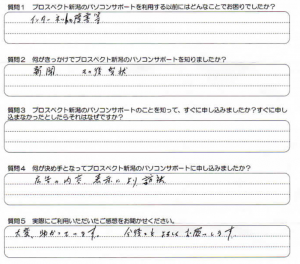 質問1 プロスペクト新潟のパソコンサポートを利用する以前にはどんなことでお困りでしたか？
インターネットの障害等
質問2 何がきっかけでプロスペクト新潟のパソコンサポートを知りましたか？
新聞
質問3 プロスペクト新潟のパソコンサポートのことを知って、すぐに申し込みましたか？すぐに申し
込まなかったとしたらそれはなぜですか？
質問4 何が決め手となってプロスペクト新潟のパソコンサポートに申し込みましたか？
広告の内容、表示により
質問5 実際にご利用いただいたご感想をお聞かせください。
大変、助かっています。 今後ともよろしくお願いします。